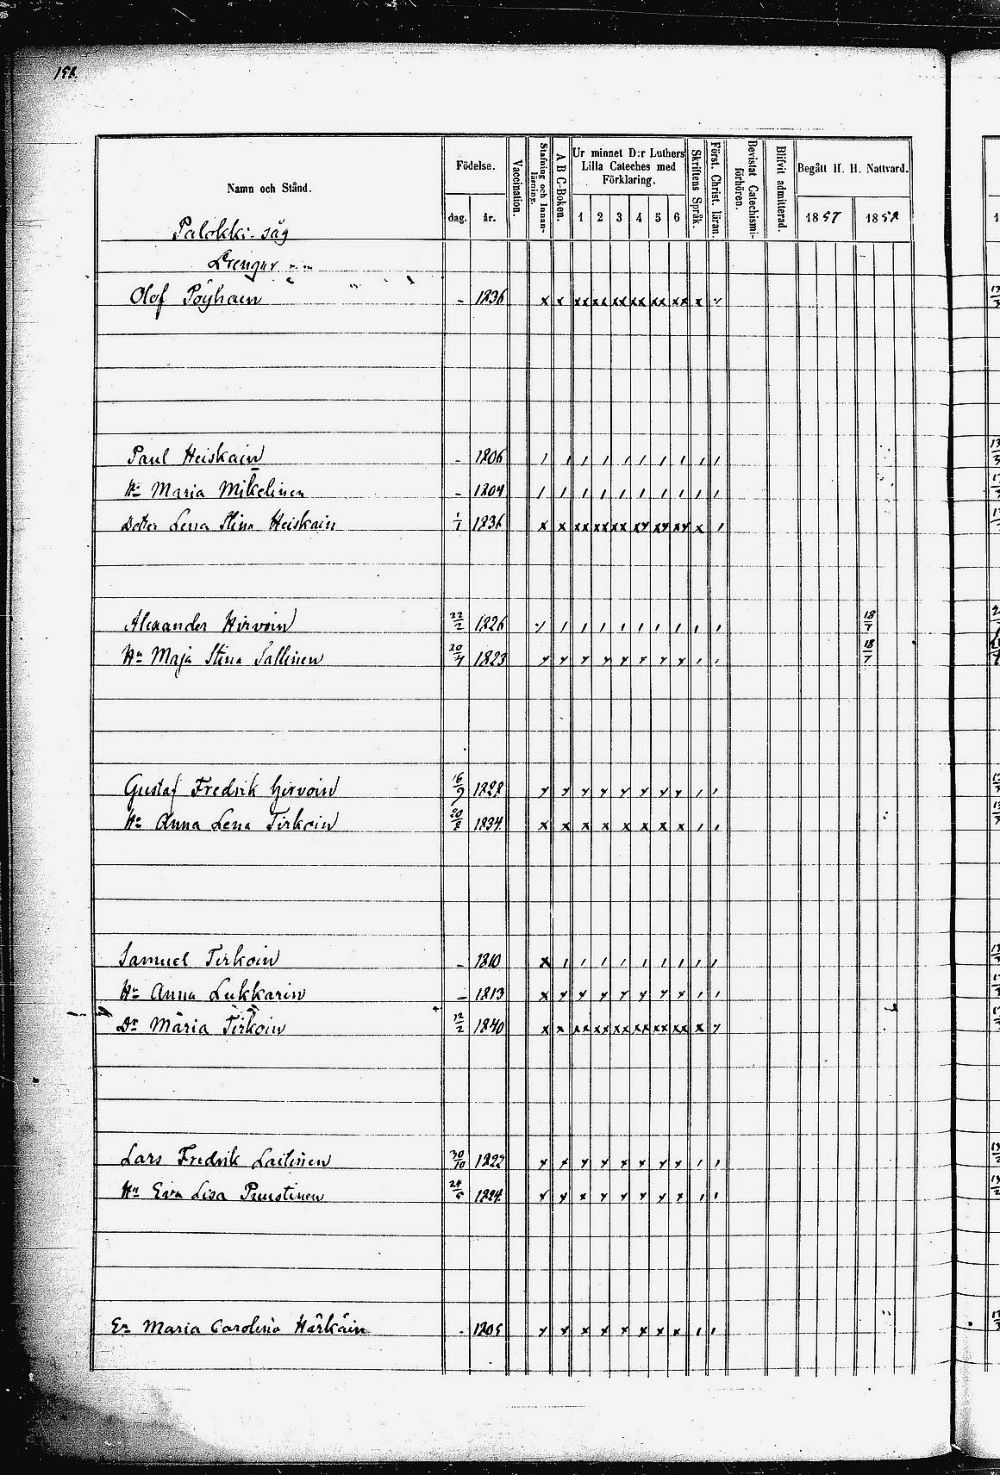 158.
Namn och Stånd.
Födelse.
dag.
år.
Vaccination.
Stafning och Innanläsning.
A B C-Boken.
Ur minnet D:r Luthers Lilla Cateches med Förklaring.
1 2 3 4 5 6
Skriftens Språk.
Först. Christ. läran.
Bevistat Catechismiförhören.
Blifvit admitterad.
Begått H. H. Nattvard.
1857 1858
Palokki såg
Drengar
Olof Pöyhäen - 1836 x x xx xx xx xx xx xx x
Paul Heiskain - 1806
Hu Maria Mikelinen - 1804
Dotter Lena Stina Heiskain 1/1 1836
Alexander Hirvoin 22/2 1826 18/7
Hu Maja Stina Sallinen 20/4 1823 18/7
Gustaf Fredrik Hirvoin 16/9 1828
Hu Anna Lena Tirkoin 1834
Samuel Tirkoin - 1810
Hu Anna Lukkarin - 1813
Dr Maria Tirkoin 12/2 1840
Lars Fredrik Laitinen 30/10 1822
Hu Eva Lisa Puustinen 1824
En Maria Carolina Härkäin - 1805